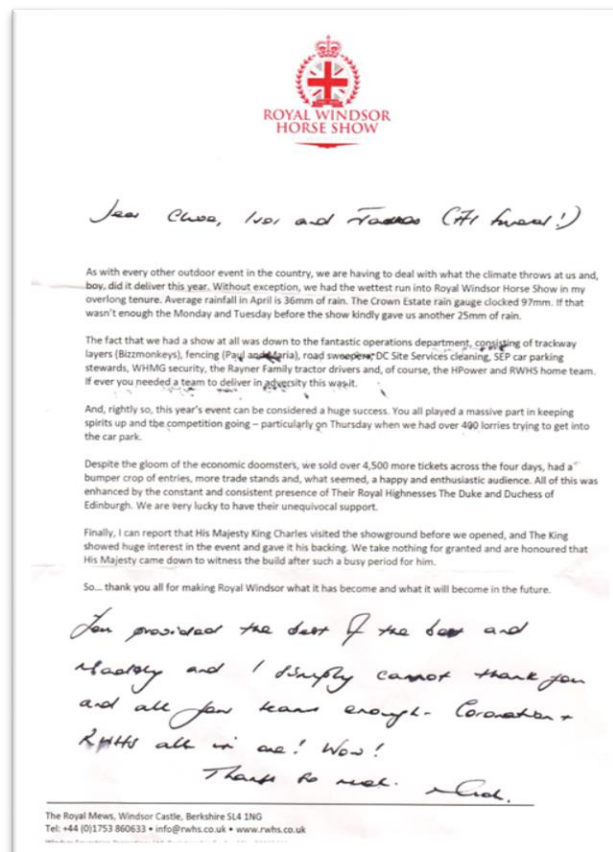 ROYAL WINDSOR
HORSE SHOW
Dear Ivor and (At
As with every other outdoor event in the country, we are having to deal with what the climate throws at us and,
boy, did it deliver this year. Without exception, we had the wettest run into Royal Windsor Horse Show in my
overlong tenure. Average rainfall in April is 36mm of rain. The Crown Estate rain gauge clocked 97mm. If that
wasn't enough the Monday and Tuesday before the show kindly gave us another 25mm of rain.
The fact that we had a show at all was down to the fantastic operations department, consisting of trackway
layers (Bizzmonkeys), fencing (Paul and Maria), road sweepers, DC Site Services cleaning, SEP car parking
stewards, WHMG security, the Rayner Family tractor drivers and, of course, the HPower and RWHS home team.
If ever you needed a team to deliver in adversity this was it.
And, rightly so, this year's event can be considered a huge success. You all played a massive part in keeping
spirits up and the competition going – particularly on Thursday when we had over 400 lorries trying to get into
the car park.
Despite the gloom of the economic doomsters, we sold over 4,500 more tickets across the four days, had a
bumper crop of entries, more trade stands and, what seemed, a happy and enthusiastic audience. All of this was
enhanced by the constant and consistent presence of Their Royal Highnesses The Duke and Duchess of
Edinburgh. We are very lucky to have their unequivocal support.
Finally, I can report that His Majesty King Charles visited the showground before we opened, and The King
showed huge interest in the event and gave it his backing. We take nothing for granted and are honoured that
His Majesty came down to witness the build after such a busy period for him.
So... thank you all for making Royal Windsor what it has become and what it will become in the future.
You provided the best of the best and
and I simply cannot thank you
and all your team enough - Coronation +
RWHS all in one! Wow!
Thanks so much.
The Royal Mews, Windsor Castle, Berkshire SL4 1NG
Tel: +44 (0)1753 860633 • info@rwhs.co.uk • www.rwhs.co.uk